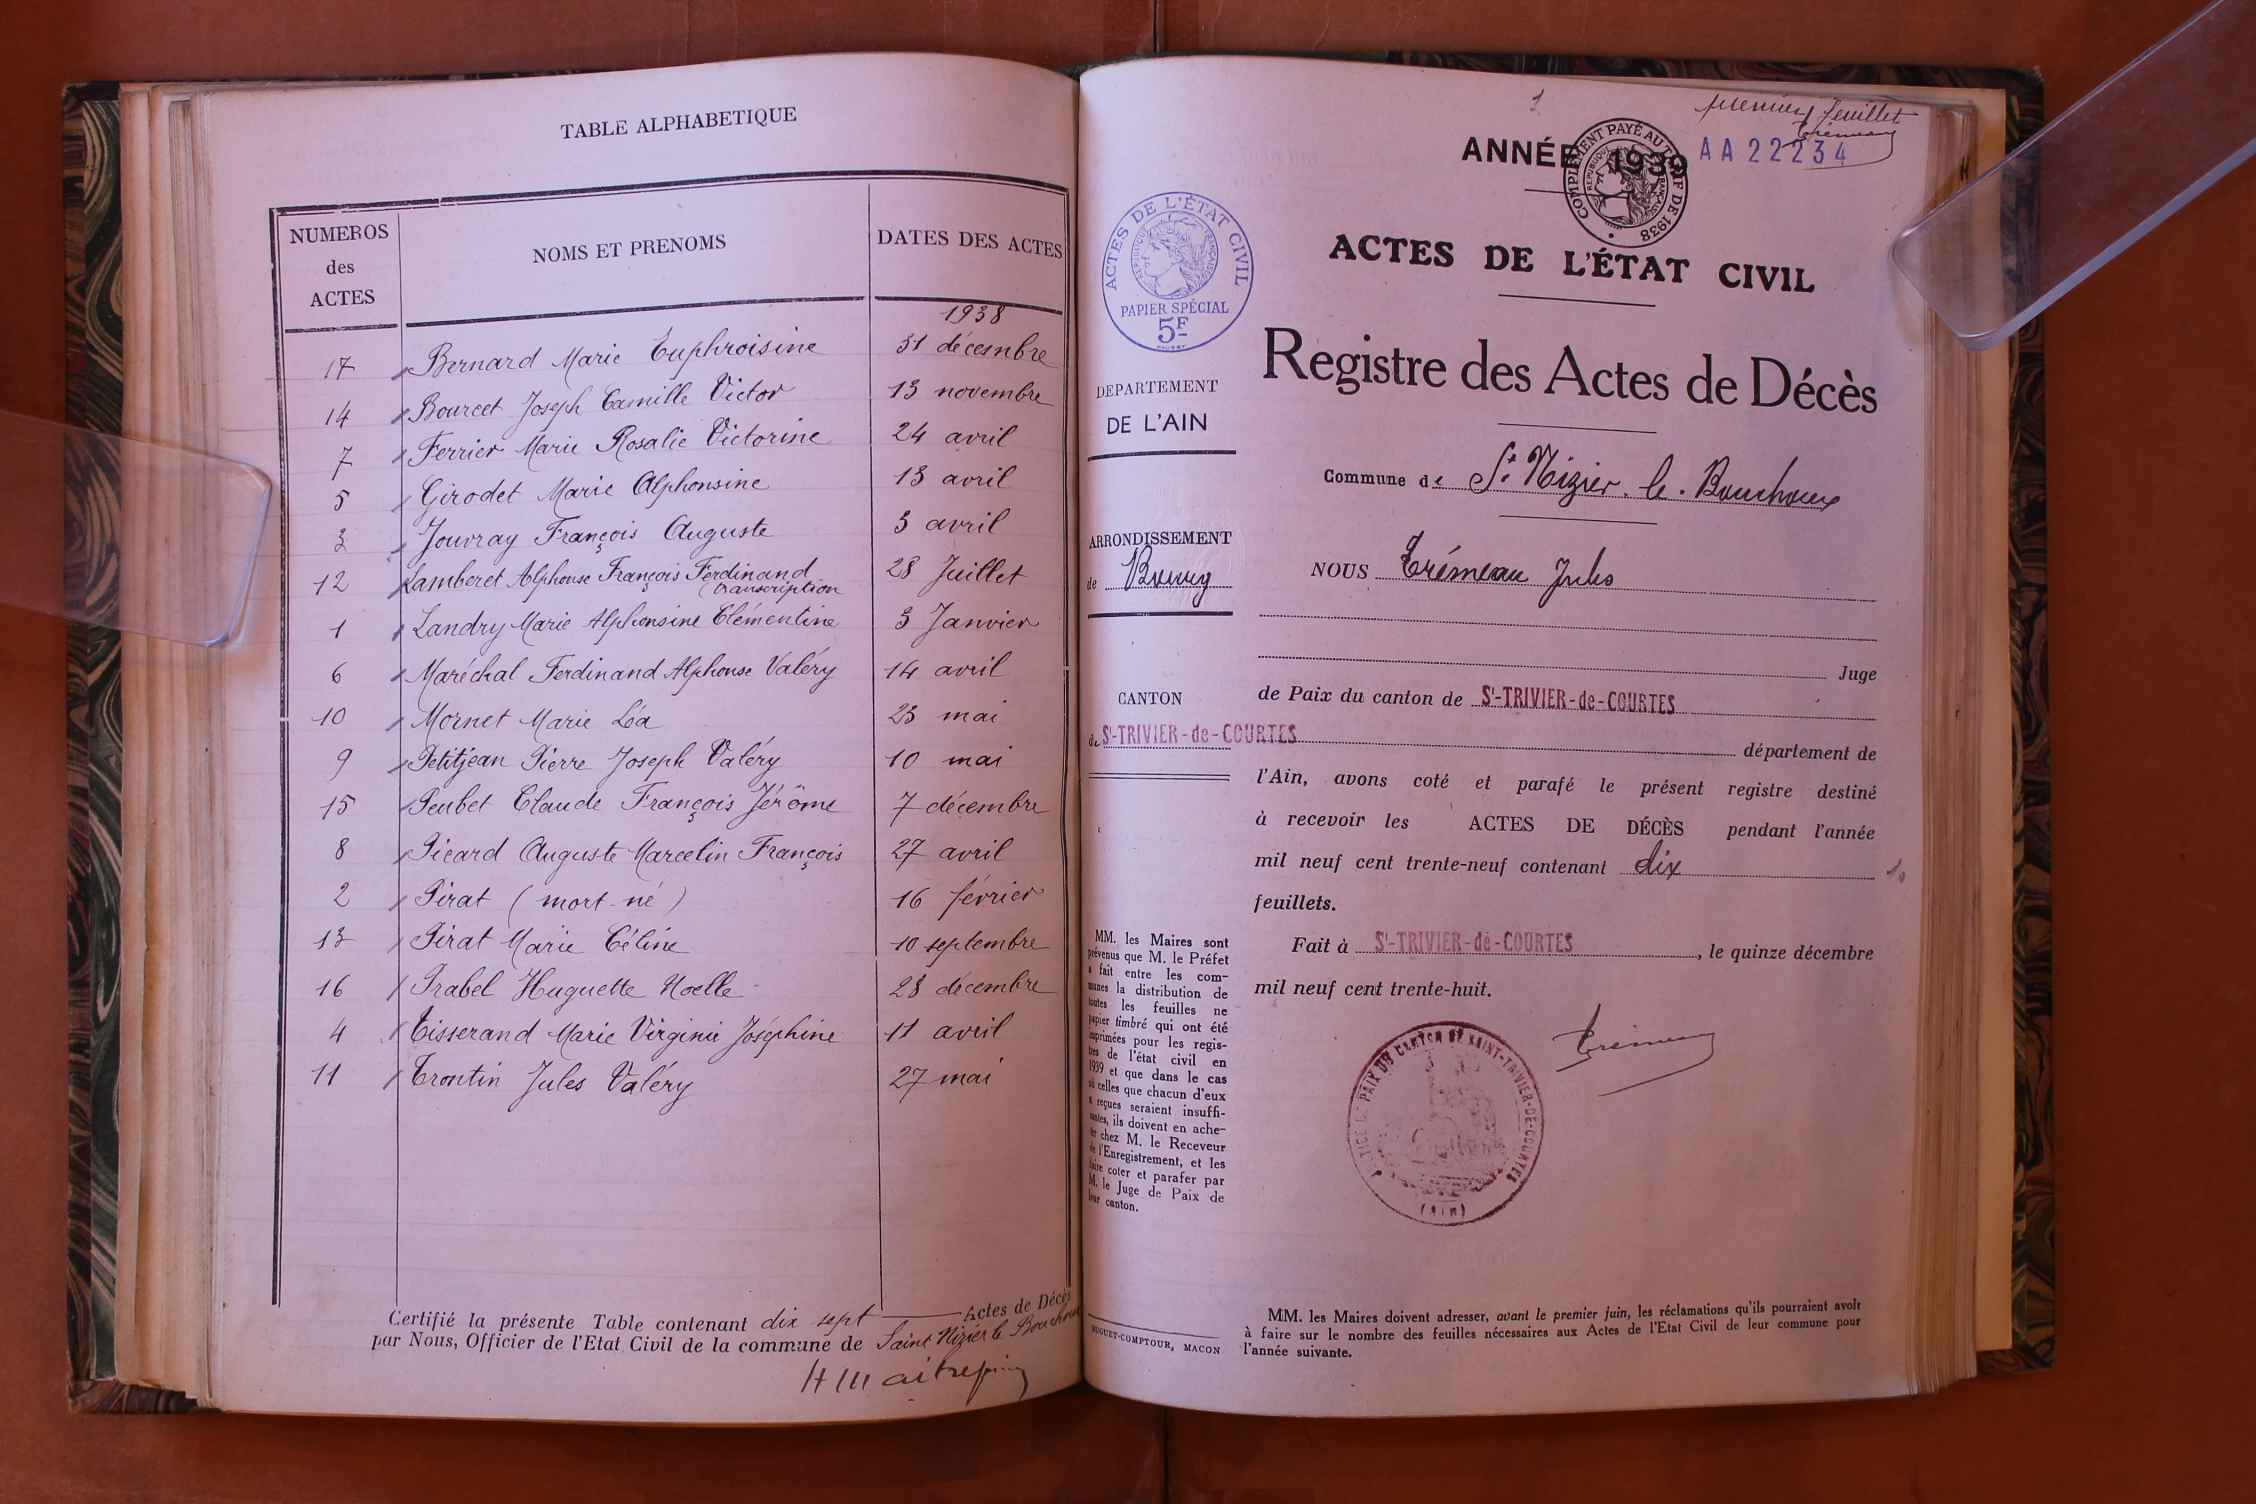 TABLE ALPHABETIQUE
NUMEROS des ACTES
NOMS ET PRENOMS
DATES DES ACTES
1938
17 Bernard Marie Euphroisine 31 décembre
14 Bourcet Joseph Camille Victor 13 novembre
7 Ferrier Marie Rosalie Victorine 24 avril
5 Girodet Marie Alphonsine 13 avril
3 Jouvray François Auguste 3 avril
12 Lamberet Alphonse François Ferdinand 28 Juillet
(transcription
1 Landry Marie Alphonsine Clémentine 3 Janvier
6 Maréchal Ferdinand Alphonse Valéry 14 avril
10 Mornet Marie Léa 23 mai
9 Petitjean Pierre Joseph Valéry 10 mai
15 Peubet Claude François Jérôme 7 décembre
8 Picard Auguste Marcelin François 27 avril
2 Pirat (mort-né) 16 février
13 Pirat Marie Céline 10 septembre
16 Prabel Huguette Noelle 28 décembre
4 Tisserand Marie Virginie Joséphine 11 avril
11 Trontin Jules Valéry 27 mai
Certifié la présente Table contenant dix sept Actes de Décès
par Nous, Officier de l'Etat Civil de la commune de Saint Nizier le Bouchoux
1
premier feuillet
Trémeau
ANNÉE 1939
AA 22234
COMPLÉMENT PAYÉ AU TARIF DE 1938
RÉPUBLIQUE FRANÇAISE
ACTES DE L'ÉTAT CIVIL
RÉPUBLIQUE FRANÇAISE
PAPIER SPÉCIAL
5F
DEPARTEMENT
DE L'AIN
ARRONDISSEMENT
de Bourg
CANTON
de St-TRIVIER-de-COURTES
MM. les Maires sont
prévenus que M. le Préfet
a fait entre les com-
munes la distribution de
toutes les feuilles ne
papier timbré qui ont été
imprimées pour les regis-
tres de l'état civil en
1939 et que dans le cas
où celles que chacun d'eux
a reçues seraient insuffi-
santes, ils doivent en ache-
ter chez M. le Receveur
de l'Enregistrement, et les
faire coter et parafer par
M. le Juge de Paix de
leur canton.
BUGUET-COMPTOUR, MACON
ACTES DE L'ÉTAT CIVIL
Registre des Actes de Décès
Commune de St. Nizier. le. Bouchoux
NOUS Trémeau Jules
Juge
de Paix du canton de St-TRIVIER-de-COURTES
département de
l'Ain, avons coté et parafé le présent registre destiné
à recevoir les ACTES DE DÉCÈS pendant l'année
mil neuf cent trente-neuf contenant dix
10
feuillets.
Fait à St-TRIVIER-de-COURTES, le quinze décembre
mil neuf cent trente-huit.
Trémeau
JUSTICE DE PAIX DU CANTON DE SAINT-TRIVIER-DE-COURTES
(Ain)
MM. les Maires doivent adresser, avant le premier juin, les réclamations qu'ils pourraient avoir
à faire sur le nombre des feuilles nécessaires aux Actes de l'Etat Civil de leur commune pour
l'année suivante.